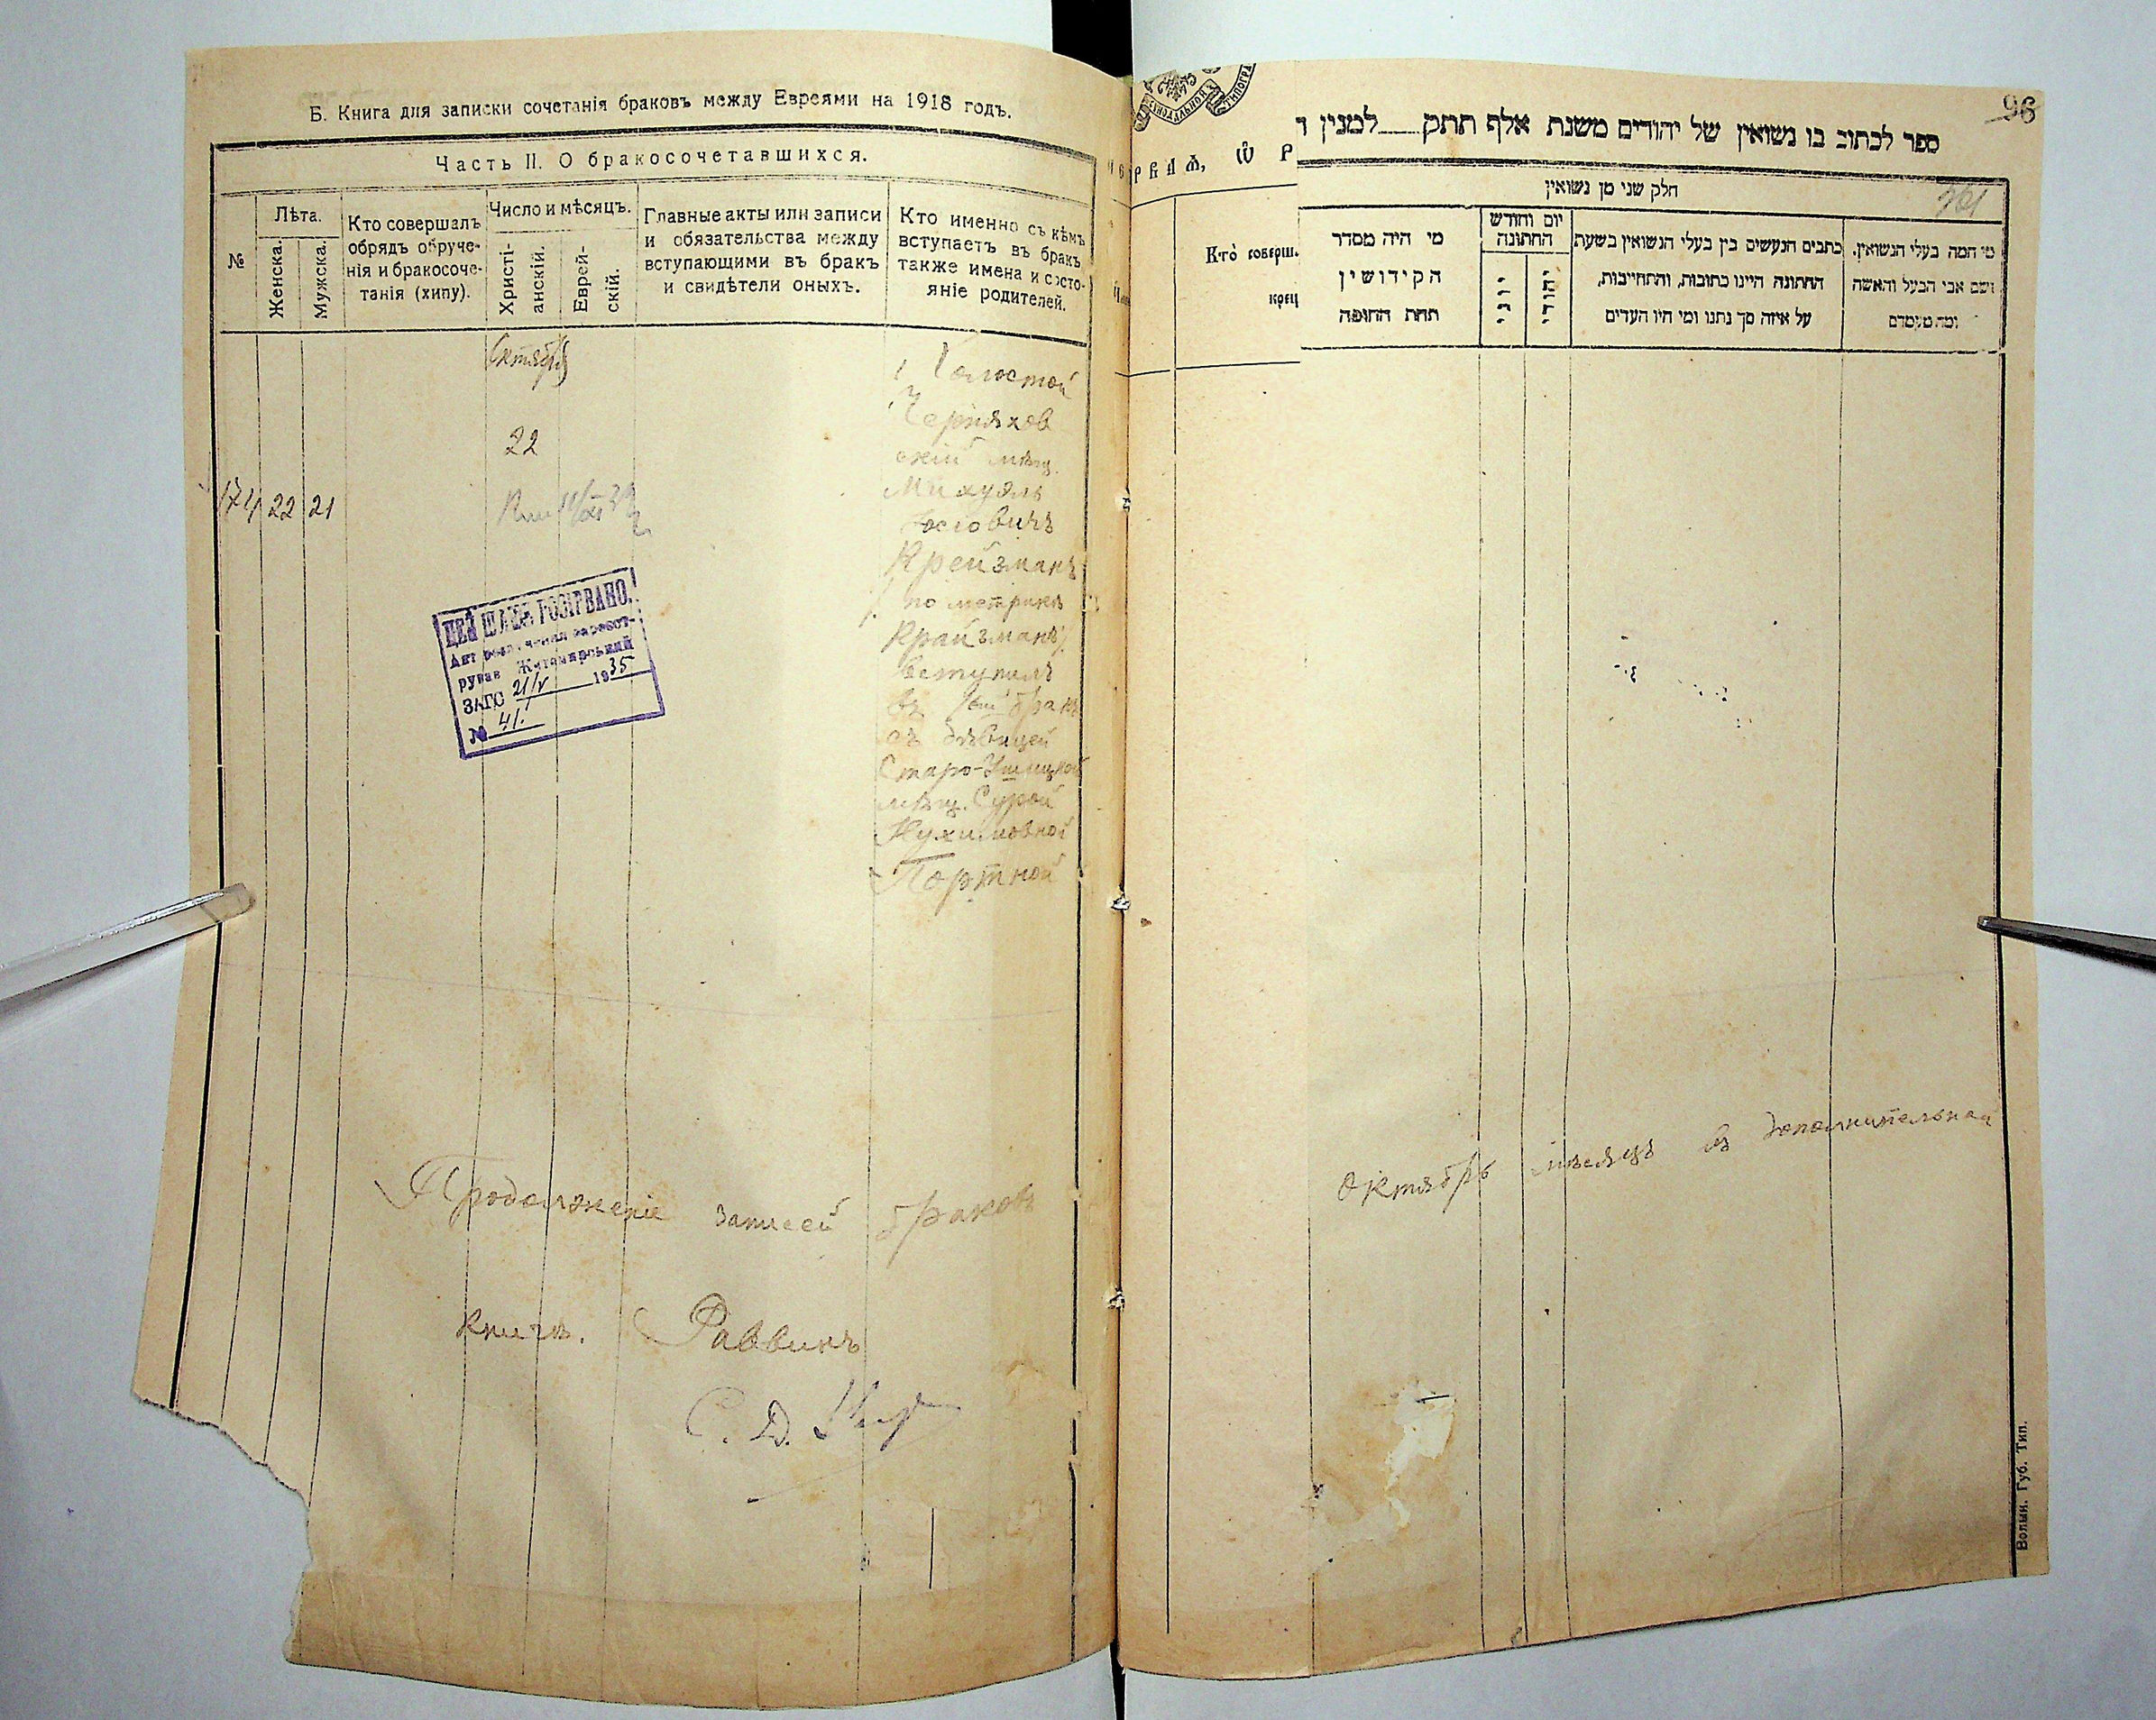 Б. Книга для записки сочетанія браковъ между Евреями на 1918 годъ.
Часть II. О бракосочетавшихся.
№
Лѣта.
Женска.
Мужска.
Кто совершалъ
обрядъ обруче-
нія и бракосоче-
танія (хипу).
Число и мѣсяцъ.
Христі-
анскій.
Еврей-
скій.
Главные акты или записи
и обязательства между
вступающими въ бракъ
и свидѣтели оныхъ.
Кто именно съ кѣмъ
вступаетъ въ бракъ
также имена и состо-
яніе родителей.
Октября
22
174 22 21
Холостой
Черняхов
скій мѣщ.
Михуэль
Іосіовичъ
Крейзманъ
по метрикѣ
Крайзманъ)
вступилъ
въ 1ый бракъ
съ дѣвицей
Старо-Ушицкой
мѣщ. Сурой
Нухимовной
Портной
ЦЕЙ ШЛЮБ РОЗІРВАНО.
рував Житомирський
ЗАГС 21/V 1935
№ 41.
Продолженіе записей браковъ
книгѣ. Раввинъ
С. Д.
96
ספר לכתוב בו נשואין של יהודים משנת אלף תתק למנין ר
חלק שני מן נשואין
761
מי המה בעלי הנשואין.
ושם אבי הבעל והאשה
ומה מעמדם
כתבים הנעשים בין בעלי הנשואין בשעת
החתונה היינו כתובות, והתחייבות,
על איזה סך נתנו ומי היו העדים
יום וחודש
החתונה
יהודי
יוני
מי היה מסדר
הקידושין
תחת החופה
Кто̀ соверш.
крещ
Октябрь мѣсяцъ въ дополнительной
Волын. Губ. Тип.